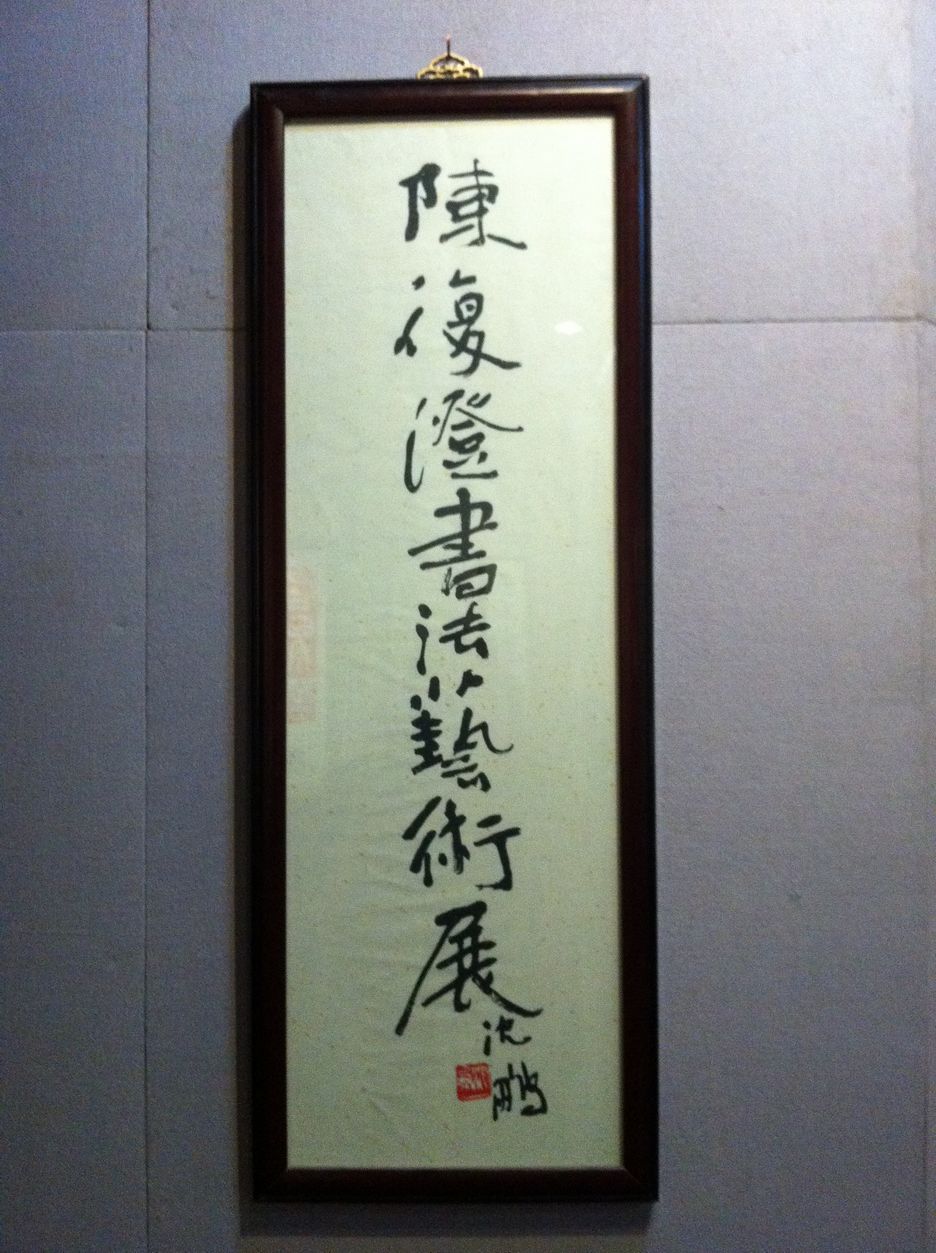 陳復澄書法藝術展
沈鵬